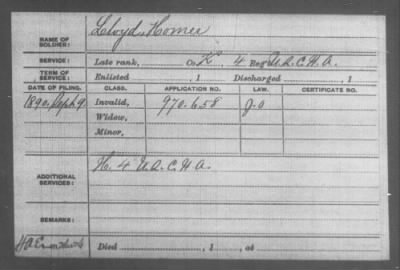 NAME OF SOLDIER: Lloyd, Homer
SERVICE: Late rank, Co. K, 4 Reg't U.S.C.H.A.
TERM OF SERVICE: Enlisted , 1 Discharged , 1
DATE OF FILING. CLASS. APPLICATION NO. LAW. CERTIFICATE NO.
1890. Sept 9 Invalid, 970.658 J.O
Widow,
Minor,
ADDITIONAL SERVICES: H. 4 U.S.C.H.A.
REMARKS:
Died , 1 , at